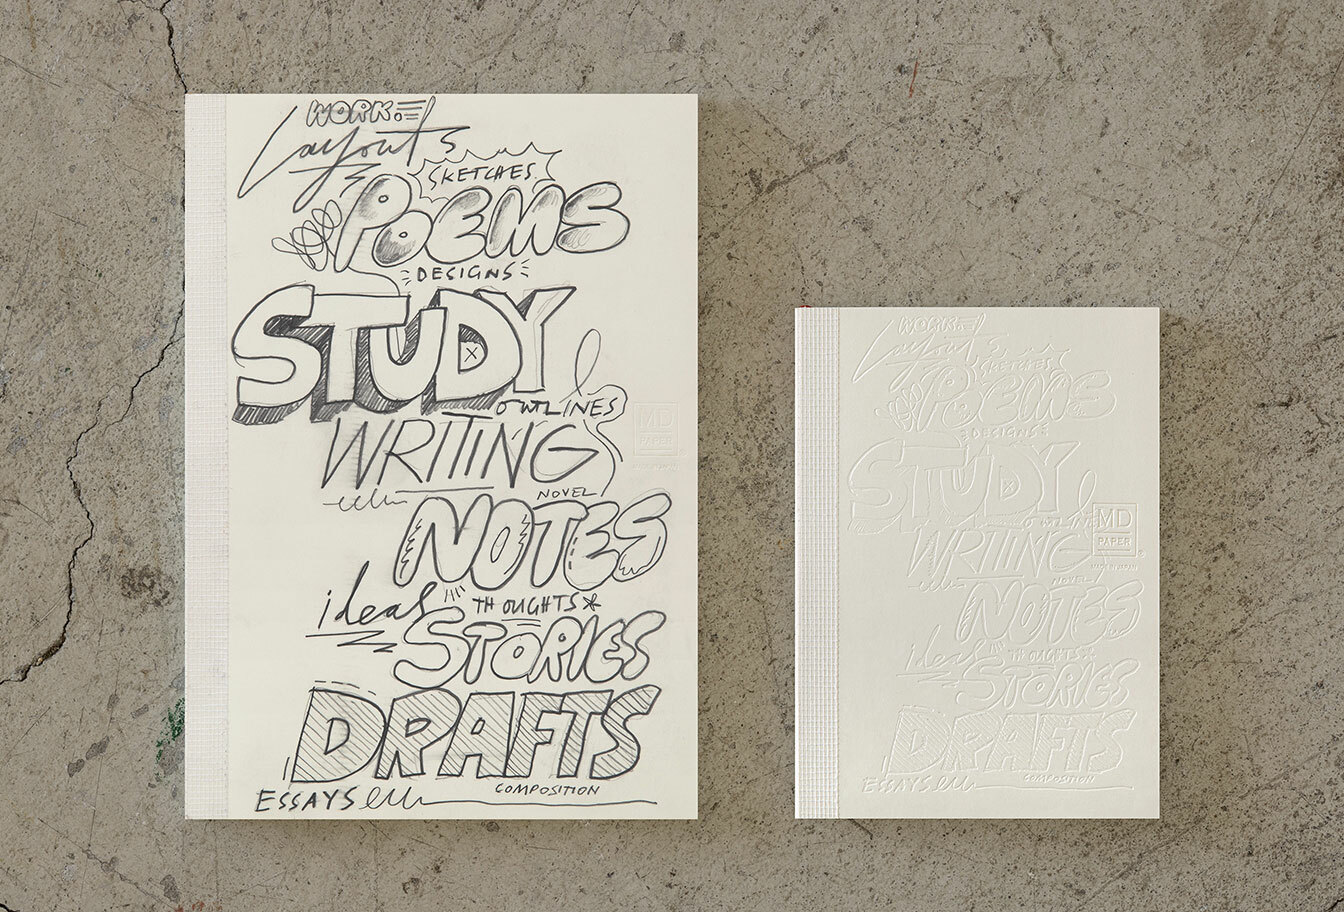 WORK.
Layouts
SKETCHES.
POEMS
DESIGNS
STUDY
OUTLINES
WRITING
MD
PAPER
MADE IN JAPAN
NOVEL
NOTES
ideas
THOUGHTS*
STORIES
DRAFTS
COMPOSITION
ESSAYS
WORK.
Layouts
SKETCHES
POEMS
DESIGNS
STUDY
OUTLINES
MD
PAPER
®
MADE IN JAPAN
WRITING
NOVEL
NOTES
ideas
THOUGHTS*
STORIES
DRAFTS
COMPOSITION
ESSAYS